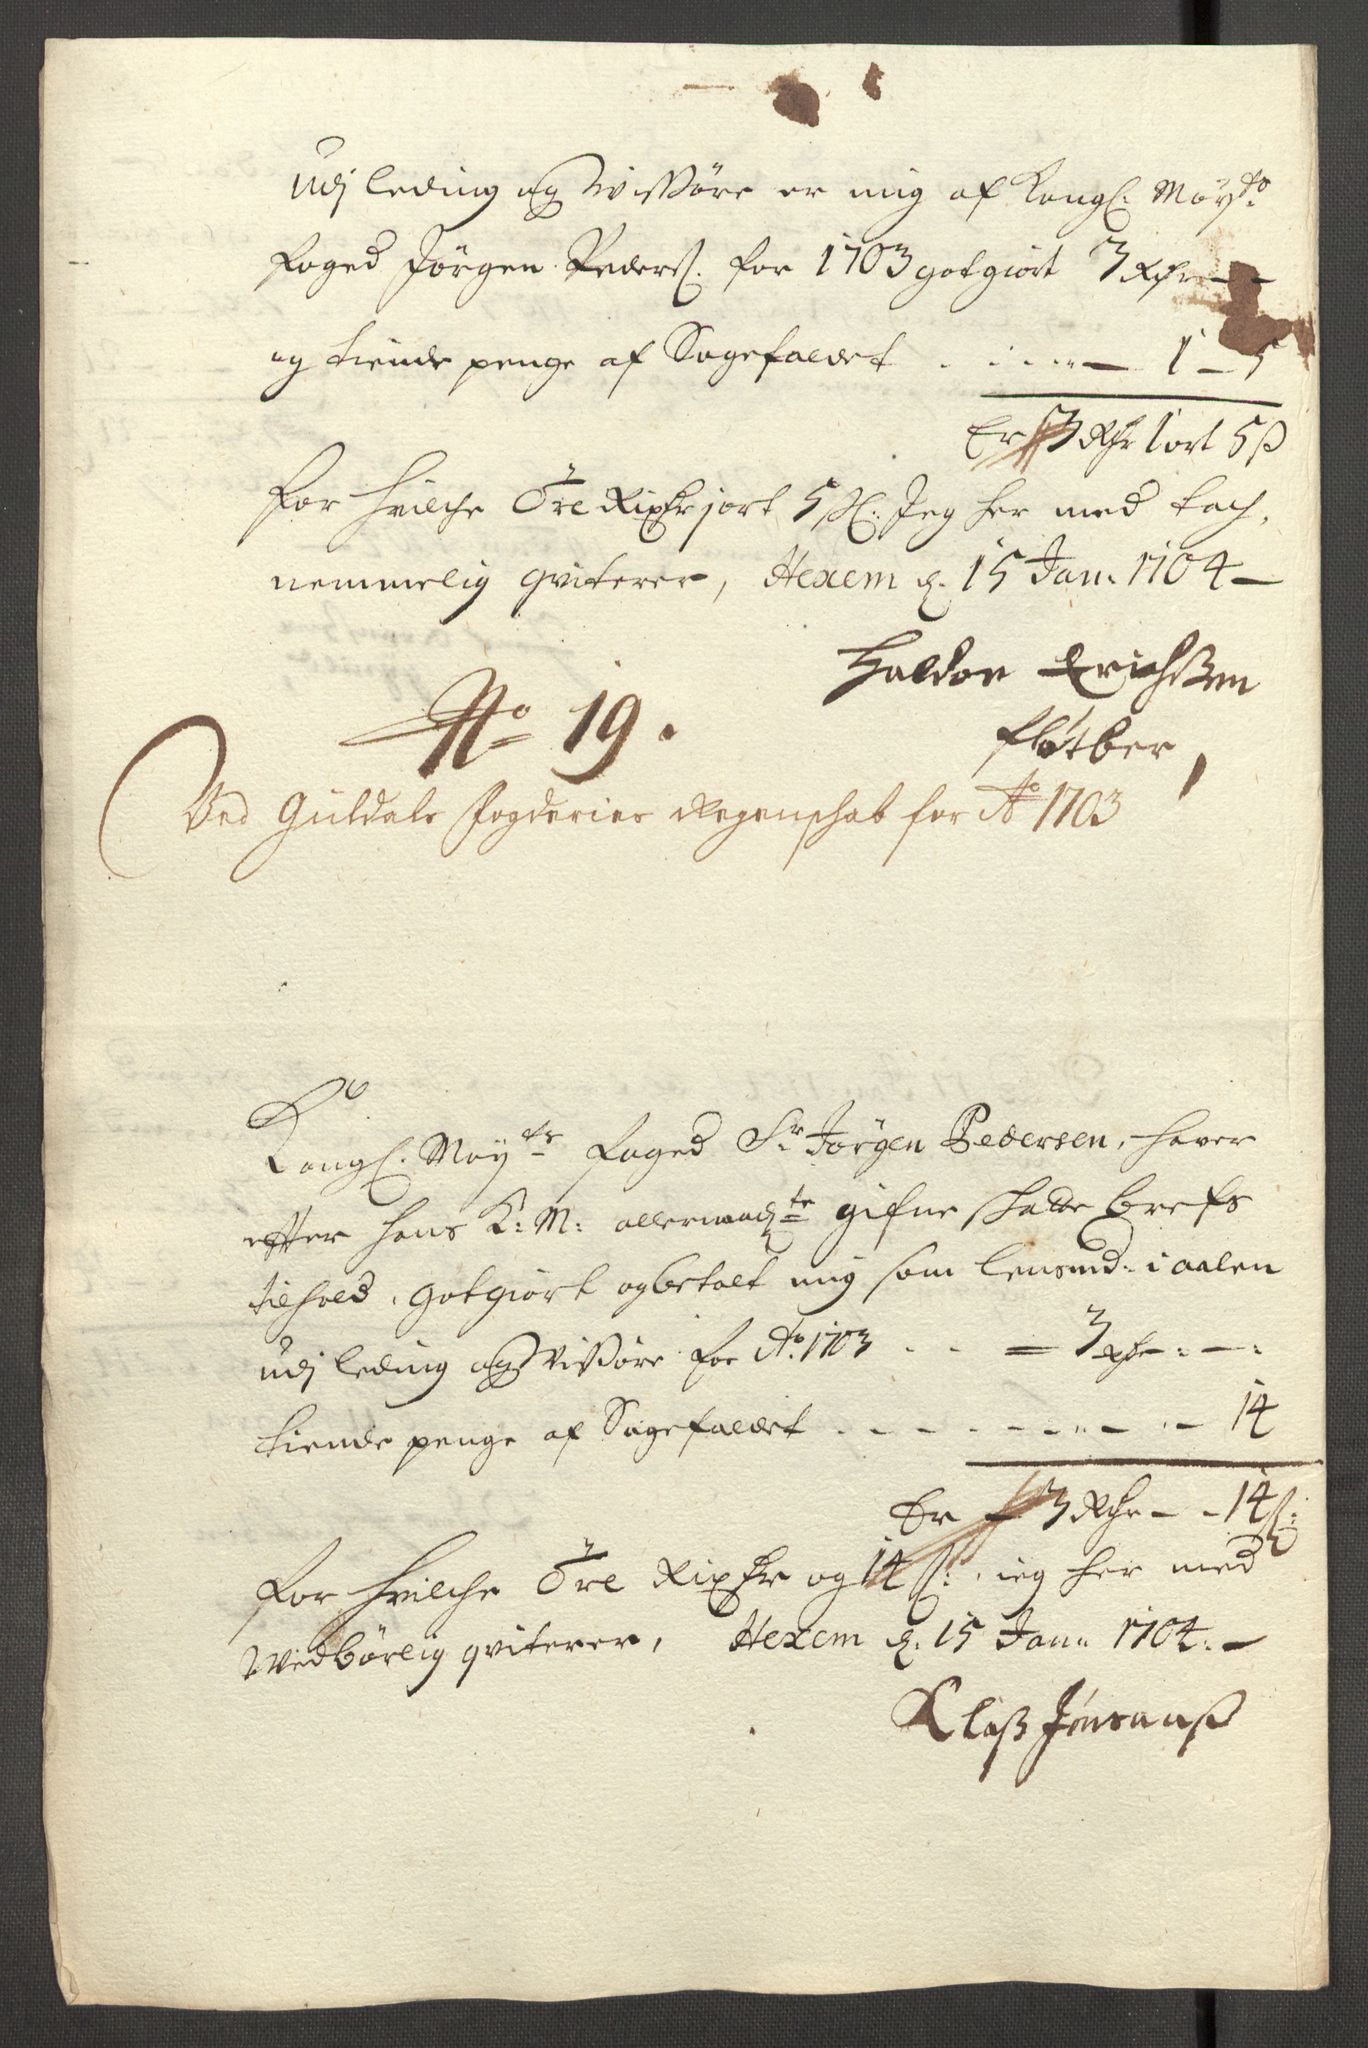 Udj leding og Wissøre er mig af Kongl: Mayts:
foged Jørgen Peders: for 1703 godgiort 3 Rdr — —
og tiende penge af Sagefaldet . . . . — 1 — 5
Er 3 Rdr 1 ort 5 ß
for hvilche Tre Rixdr 1 ort 5 ß: Jeg her med tach,
nemmelig qviterer, Hexem d: 15 Jan: 1704 —
Haldor Erichssen
fløtber
No 19.
Ved Guldals fogderies Regenschab for Ao 1703
Kongl: Mayts foged Sr Jørgen Pedersen, haver
effter hans K: M: allernaadste gifne skatte brefs
tilhold, godgiort og betalt mig som lensmd: i aalen
udj leding og Wissøre for Ao: 1703 . . = 3 Rdr — : — :
tiende penge af Sagefaldet . . . . . . . — 14
Er — 3 Rdr — — 14 ß:
for hvilche Tre Rixdr og 14 ß: ieg her med
Wedbørlig qviterer, Hexem d: 15 Jan: 1704: —
Klaß Jønsauß